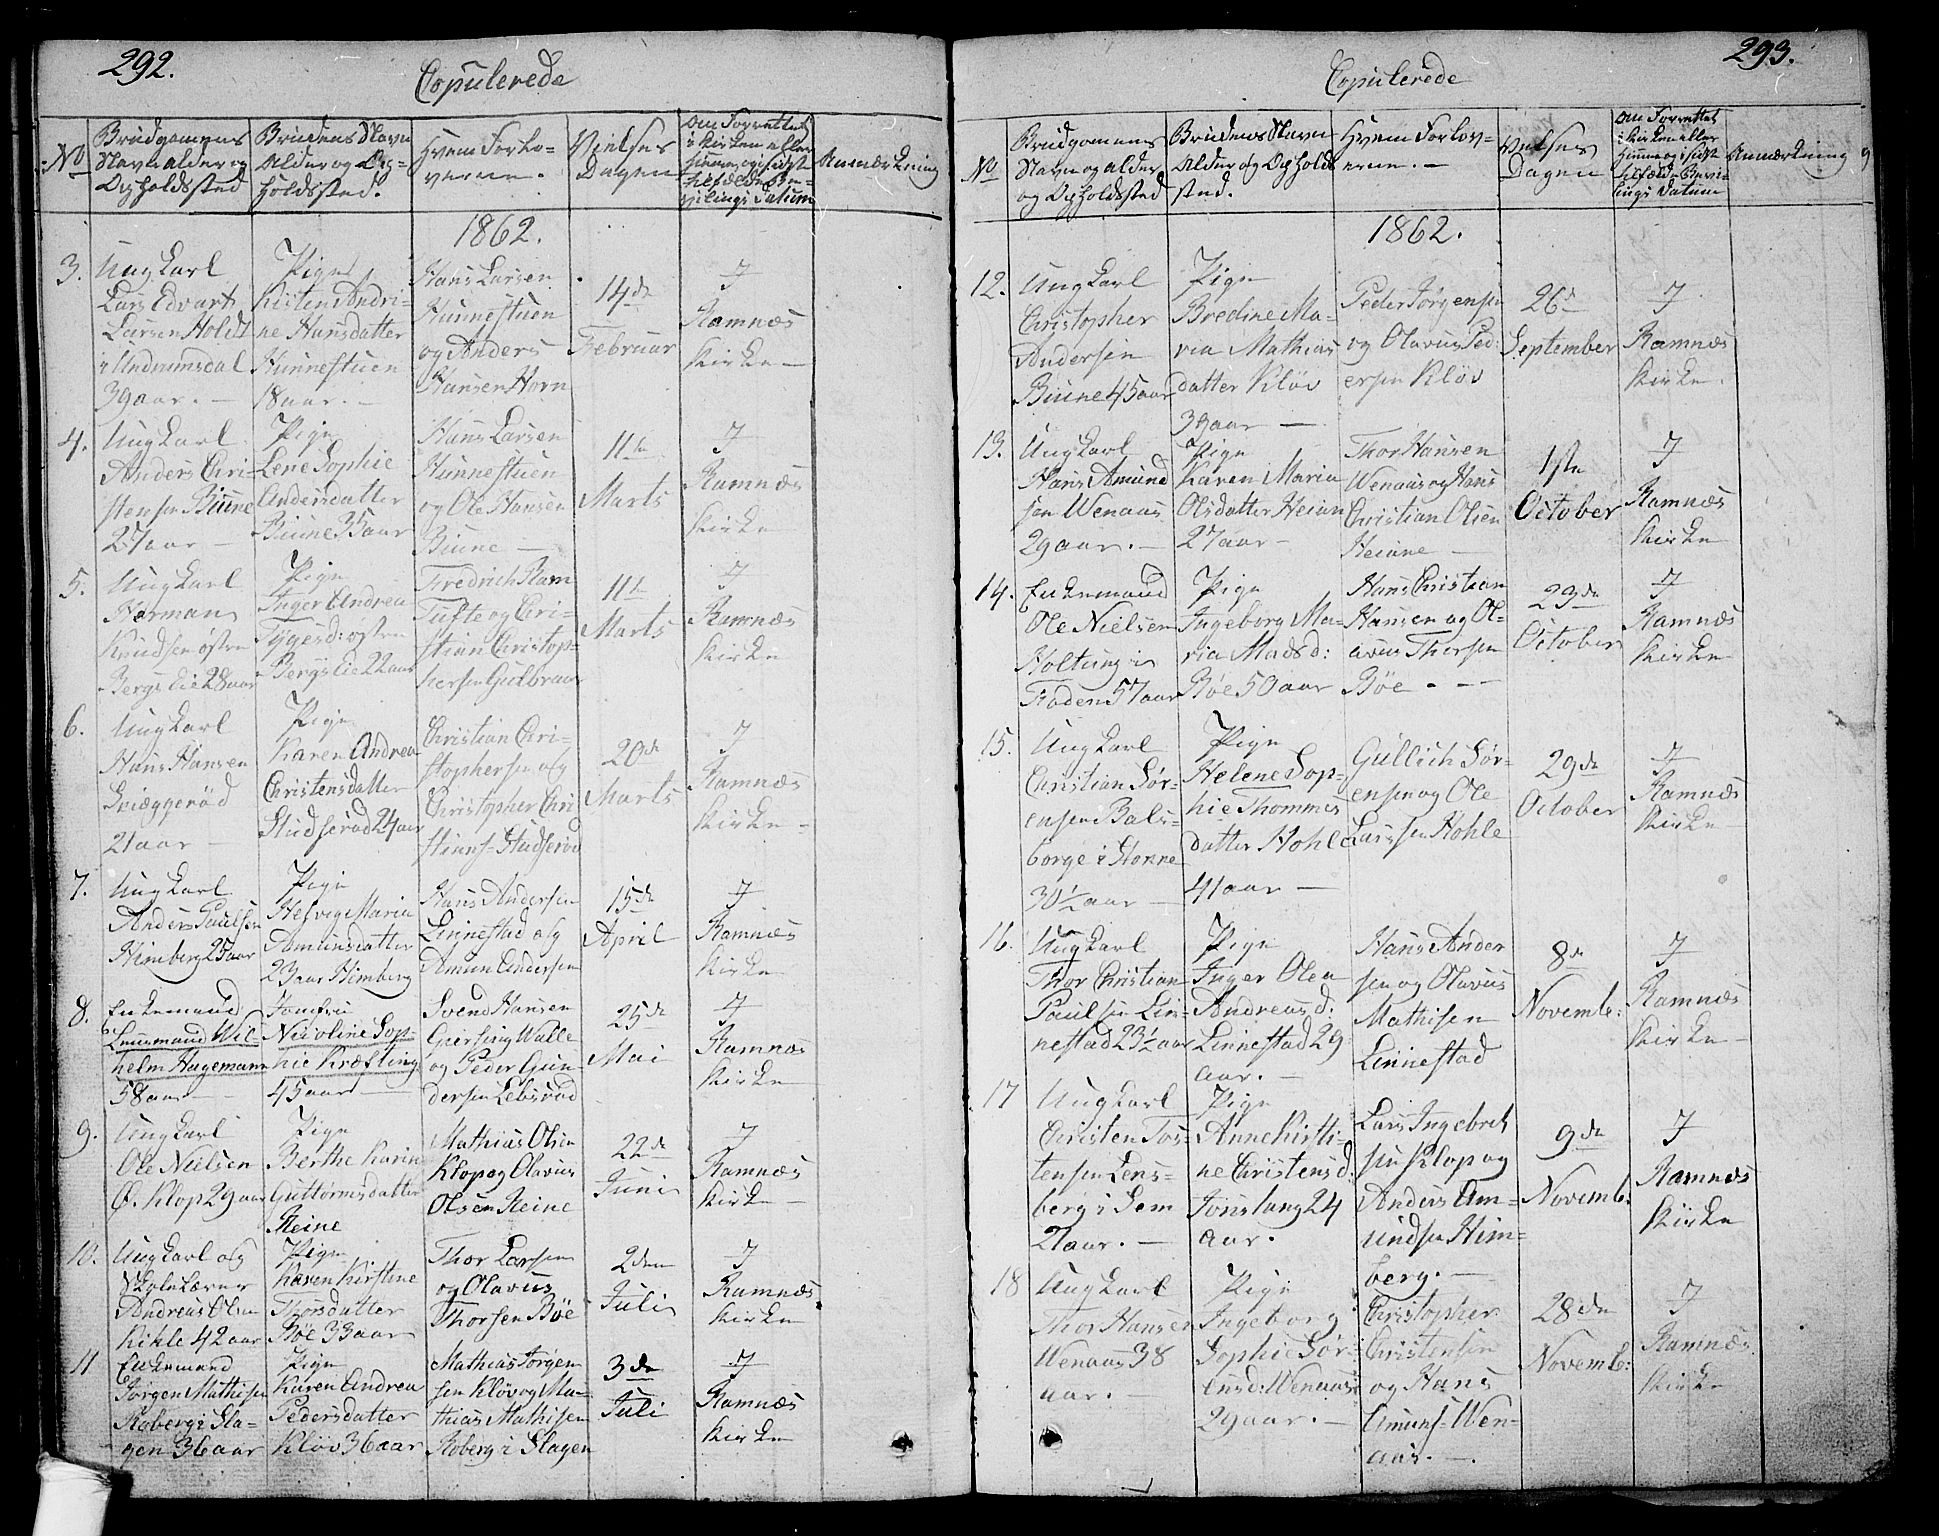 292.
Copulerede
No
Brudgomens
Navn alder og
Opholdssted
Brudens Navn
Alder og Op-
holdssted.
Hvem Forlo-
verne.
Vielses
Dagen
Om Forrettet
i Kirken eller
hjemme og i sidste
tilfælde Be-
vilings Datum
Anmærkning
1862.
3.
Ungkarl
Lars Edvart
Larsen Holdt
i Undrumsdal
39 aar. —
Pige
Kistens Andri-
ne Hansdatter
Hunnestuen
18 aar. —
Hans Larsen
Hunnestuen
og Anders
Hansen Horn
14de
Februar
I
Ramnæs
Kirke —
4.
Ungkarl
Anders Chri-
stensen Biune
27 aar —
Pige
Lene Sophie
Andersdatter
Biune 35 aar
Hans Larsen
Hunnestuen
og Ole Hansen
Biune —
11te
Marts
I
Ramnæs
Kirke
5.
Ungkarl
Herman
Knudsen østre
Bergs Eie 28 aar
Pige
Inger Andrea
Tygesd: østre
Bergs Eie 22 aar
Fredrich Ram
Tufte og Chri-
stian Christop-
hersen Gulbran
11te
Marts
I
Ramnæs
Kirke
6.
Ungkarl
Hans Hansen
Sviæggerød
21 aar —
Pige
Karen Andrea
Christensdatter
Studserød 24 aar
Christian Chri-
stophersen og
Christopher Chri
stians- Studserød
20de
Marts
I
Ramnæs
Kirke —
7.
Ungkarl
Anders Paulsen
Himberg 25 aar
Pige
Helvig Maria
Amunsdatter
23 aar Himberg
Hans Andersen
Linnestad og
Amun Andersen
15de
April
I
Ramnæs
Kirke —
8.
Enkemand
Wil-
helm Hagemann
58 aar —
Jomfru
Nicoline Sop-
hie Kræfting
45 aar —
Svend Hansen
Giersing Walle
og Peder Gun-
dersen Lebsrød
25de
Mai
I
Ramnæs
Kirke —
9.
Ungkarl
Ole Nielsen
Ø. Klop 29 aar
Pige
Berthe Karin
Guttormsdatter
Reine
Mathias Olsen
Klop og Olavus
Olsen Reine
22de
Juni
I
Ramnæs
Kirke —
10.
Ungkarl og
Skolelærer
Andreas Olsen
Kihle 42 aar
Pige
Karen Kirstine
Thorsdatter
Bøe 33 aar
Thor Larsen
og Olavus
Thorsen Bøe
2den
Juli
I
Ramnæs
Kirke
11
Enkemand
Jørgen Mathisen
Roberg i Sla-
gen 36 aar
Pige
Karen Andrea
Pedersdatter
Kløv 36 aar
Mathias Jørgen
sen Kløv og Ma-
thias Mathisen
Roberg i Slagen
3de
Juli
I
Ramnæs
Kirke
293.
Copulerede
No
Brudgomens
Navn og alder
og Opholdssted
Brudens Navn
Alder og Ophold
sted.
Hvem Forlov-
erne. —
Vielses
Dagen
Om Forrettet
i Kirken eller
hjemme og i sidst
tilfælde Bevi-
lings Datum
Anmærkning
1862.
12.
Ungkarl
Christopher
Andersen
Biune 45 aar
Pige
Bredine Ma-
ria Mathias
datter Kløv
39 aar —
Peder Jørgensen
og Olavus Ped:
ersen Kløv
26de
September
I
Ramnæs
Kirke.
13.
Ungkarl
Hans Amund
sen Wenaas
29 aar. —
Pige
Karen Maria
Olsdatter Heian
27 aar —
Thor Hansen
Wenaas og Hans
Christian Olsen
Heiane —
1ste
October
I
Ramnæs
Kirke
14.
Enkemand
Ole Nielsen
Holtung i
Foden 57 aar
Pige
Ingeborg Ma-
ria Madsd:
Bøe 50 aar
Hans Christian
Hansen og Ol-
avus Thorsen
Bøe
23de
October
I
Ramnæs
Kirke
15.
Ungkarl
Christian Sør-
ensen Bals-
borge i Stokke
30 1/2 aar —
Pige
Helene Sop-
hie Thommes
datter Hohle
41 aar —
Gullich Sør-
ensen og Ole
Larssen Hohle
29de
October
I
Ramnæs
Kirke —
16.
Ungkarl
Thor Christian
Paulsen Lin-
nestad 23 1/2 aar
Pige
Inger Olea
Andreasd:
Linnestad 29
aar. —
Hans Ander
sen og Olavus
Mathisen
Linnestad
8de
Novemb:
I
Ramnæs
Kirke —
17
Ungkarl
Christen Tos-
tensen Lens-
berg i Sem
27 aar. —
Pige
Anne Kirsti-
ne Christensd:
Jonslang 24
aar.
Lars Ingebret
sen Klop og
Anders Am-
undsen Him-
berg. —
9de
Novemb:
I
Ramnæs
Kirke
18
Ungkarl
Thor Hansen
Wenaas 38
aar. —
Pige
Ingeborg
Sophie Sør-
ensd: Wenaas
29 aar. —
Christopher
Christensen
og Hans
Amuns- Wen-
aas. —
28de
Novemb:
I
Ramnæs
Kirke